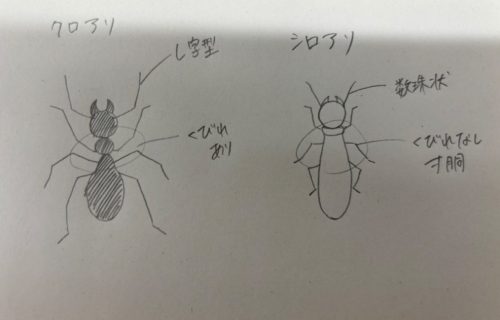 クロアリ
L字型
くびれ
あり
シロアリ
数珠状
くびれなし
寸胴